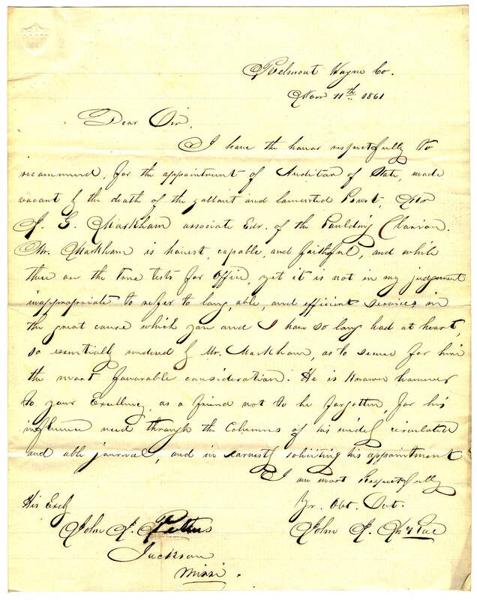 Belmont Wayne Co.
Nov 11th 1861
Dear Sir.
I have the honor respectfully to
recommend, for the appointment of Auditor of State, made
vacant by the death of the gallant and lamented Burt,
J. G. Markham associate Edr. of the Paulding Clarion.
Mr. Markham is honest, capable, and faithful, and while
these are the true tests for office, yet it is not in my judgement
inappropriate to refer to long, able, and efficient services in
the great cause which you and I have so long had at heart,
so essentially rendered by Mr. Markham, as to secure for him
the most favorable consideration. He is known however
to your Excellency, as a friend not to be forgotten, for his
influence used through the columns of his widely circulated
and able journal, and in earnestly soliciting his appointment
I am most Respectfully
His Excly Yr. Obt. Svt.
John J. Pettus John J.
Jackson
Missi.